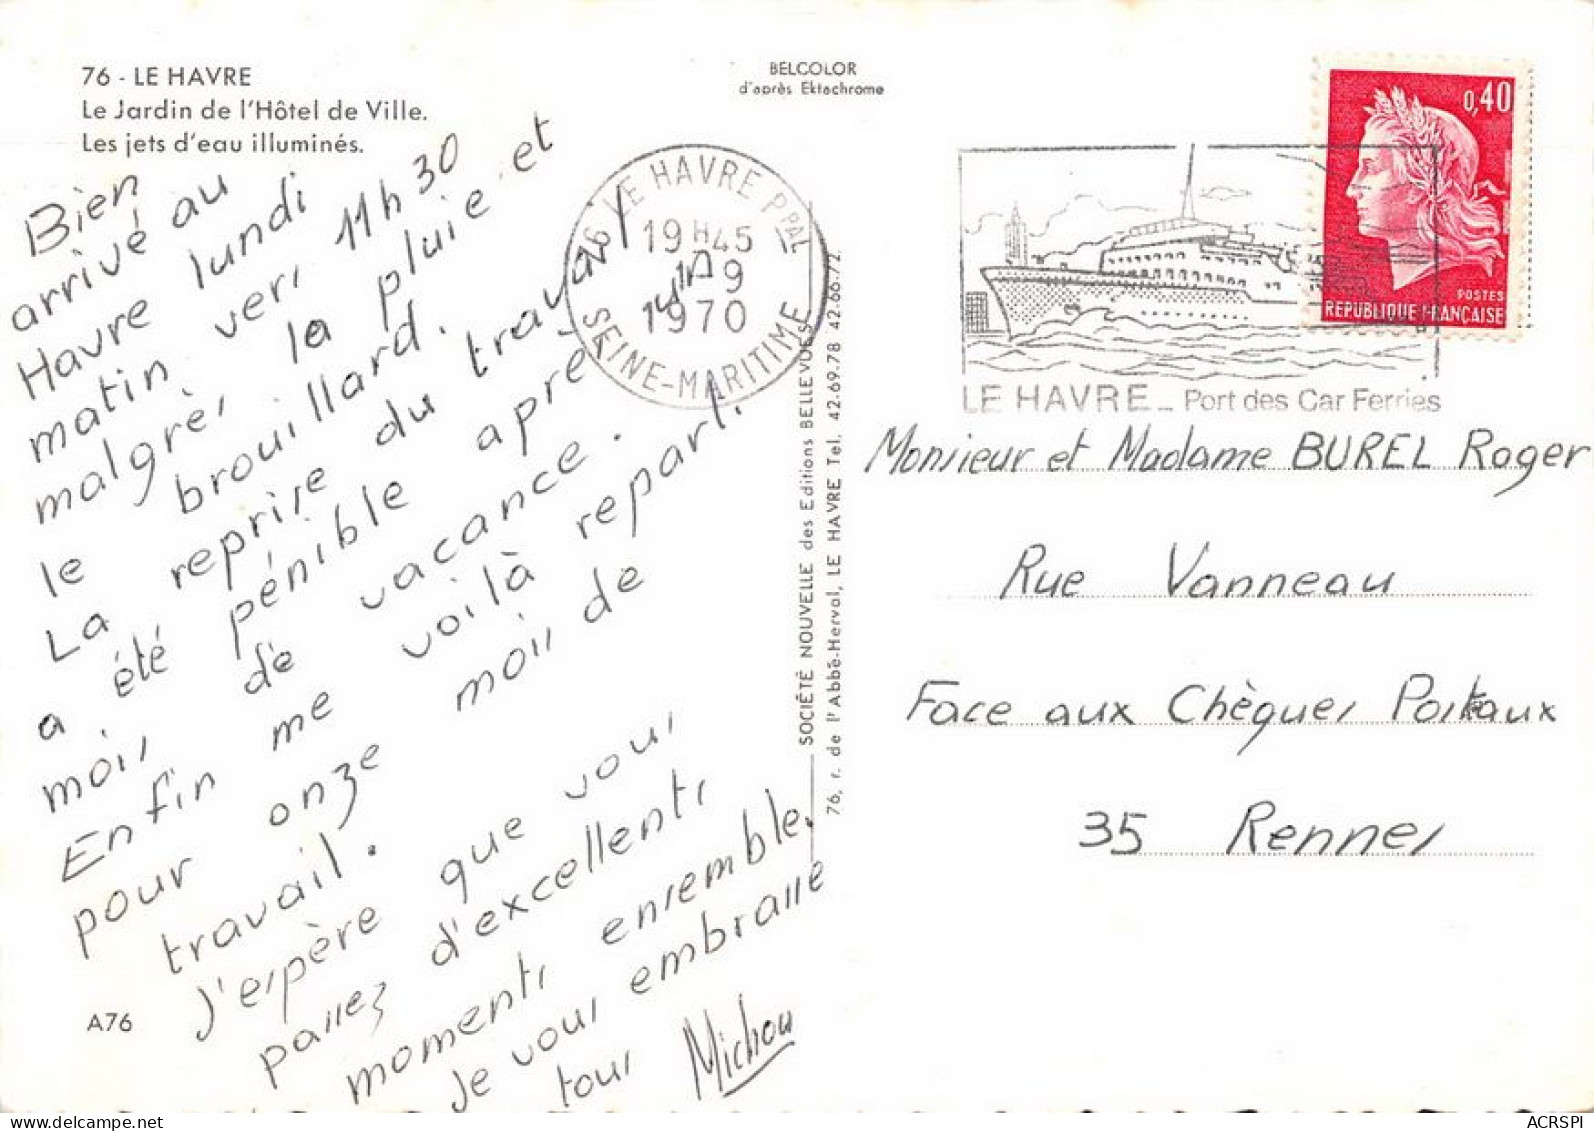 76 - LE HAVRE
Le Jardin de l'Hôtel de Ville.
Les jets d'eau illuminés.
BELCOLOR
d'après Ektachrome
0,40
POSTES
REPUBLIQUE FRANÇAISE
76 LE HAVRE PPAL
19H45
1970
SEINE-MARITIME
LE HAVRE _ Port des Car Ferries
Bien
arrivé au
Havre lundi
matin vers 11h30
malgrès la pluie et
le brouillard.
La reprise du travail
a été pénible après
mois de vacance.
Enfin me voilà reparti
pour onze mois de
travail.
J'espère que vous
passez d'excellents
moments ensemble.
Je vous embrasse
tous Michou
Monsieur et Madame BUREL Roger
Rue Vanneau
Face aux Chèques Postaux
35 Rennes
SOCIÉTÉ NOUVELLE des Editions BELLEVUES
76, r. de l'Abbé-Herval, LE HAVRE Tel. 42.69.78 42.66.72.
A76
ACRSPI